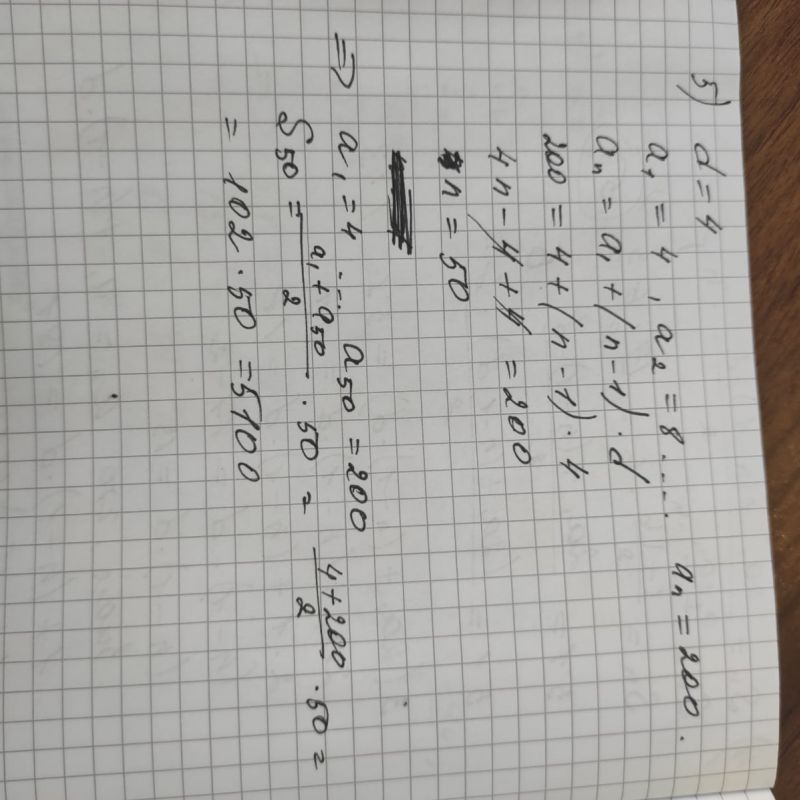 5) d = 4
a₁ = 4 , a₂ = 8 .... aₙ = 200.
aₙ = a₁ + (n - 1) · d
200 = 4 + (n - 1) · 4
4n - 4 + 4 = 200
n = 50
⇒ a₁ = 4 .... a₅₀ = 200
S₅₀ = (a₁ + a₅₀)/2 · 50 = (4 + 200)/2 · 50 =
= 102 · 50 = 5100